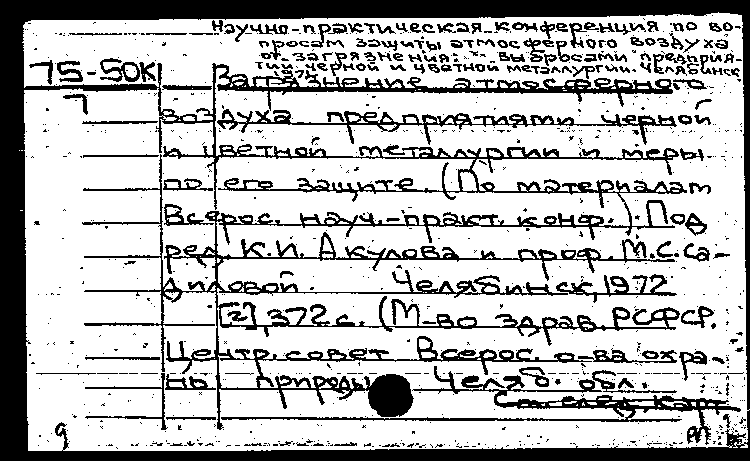 Научно-практическая конференция по во-
просам защиты атмосферного воздуха
от загрязнения выбросами предприя-
тий черной и цветной металлургии. Челябинск
75-50К Загрязнение атмосферного
7 воздуха предприятиями черной
и цветной металлургии и меры
по его защите. (По материалам
Всерос. науч.-практ. конф.). Под
ред. К.И. Акулова и проф. М.С. Са-
диловой. Челябинск, 1972
[2], 372 с. (М-во здрав. РСФСР.
Центр. совет Всерос. о-ва охра-
ны природы Челяб. обл.
См. след. карт.
9